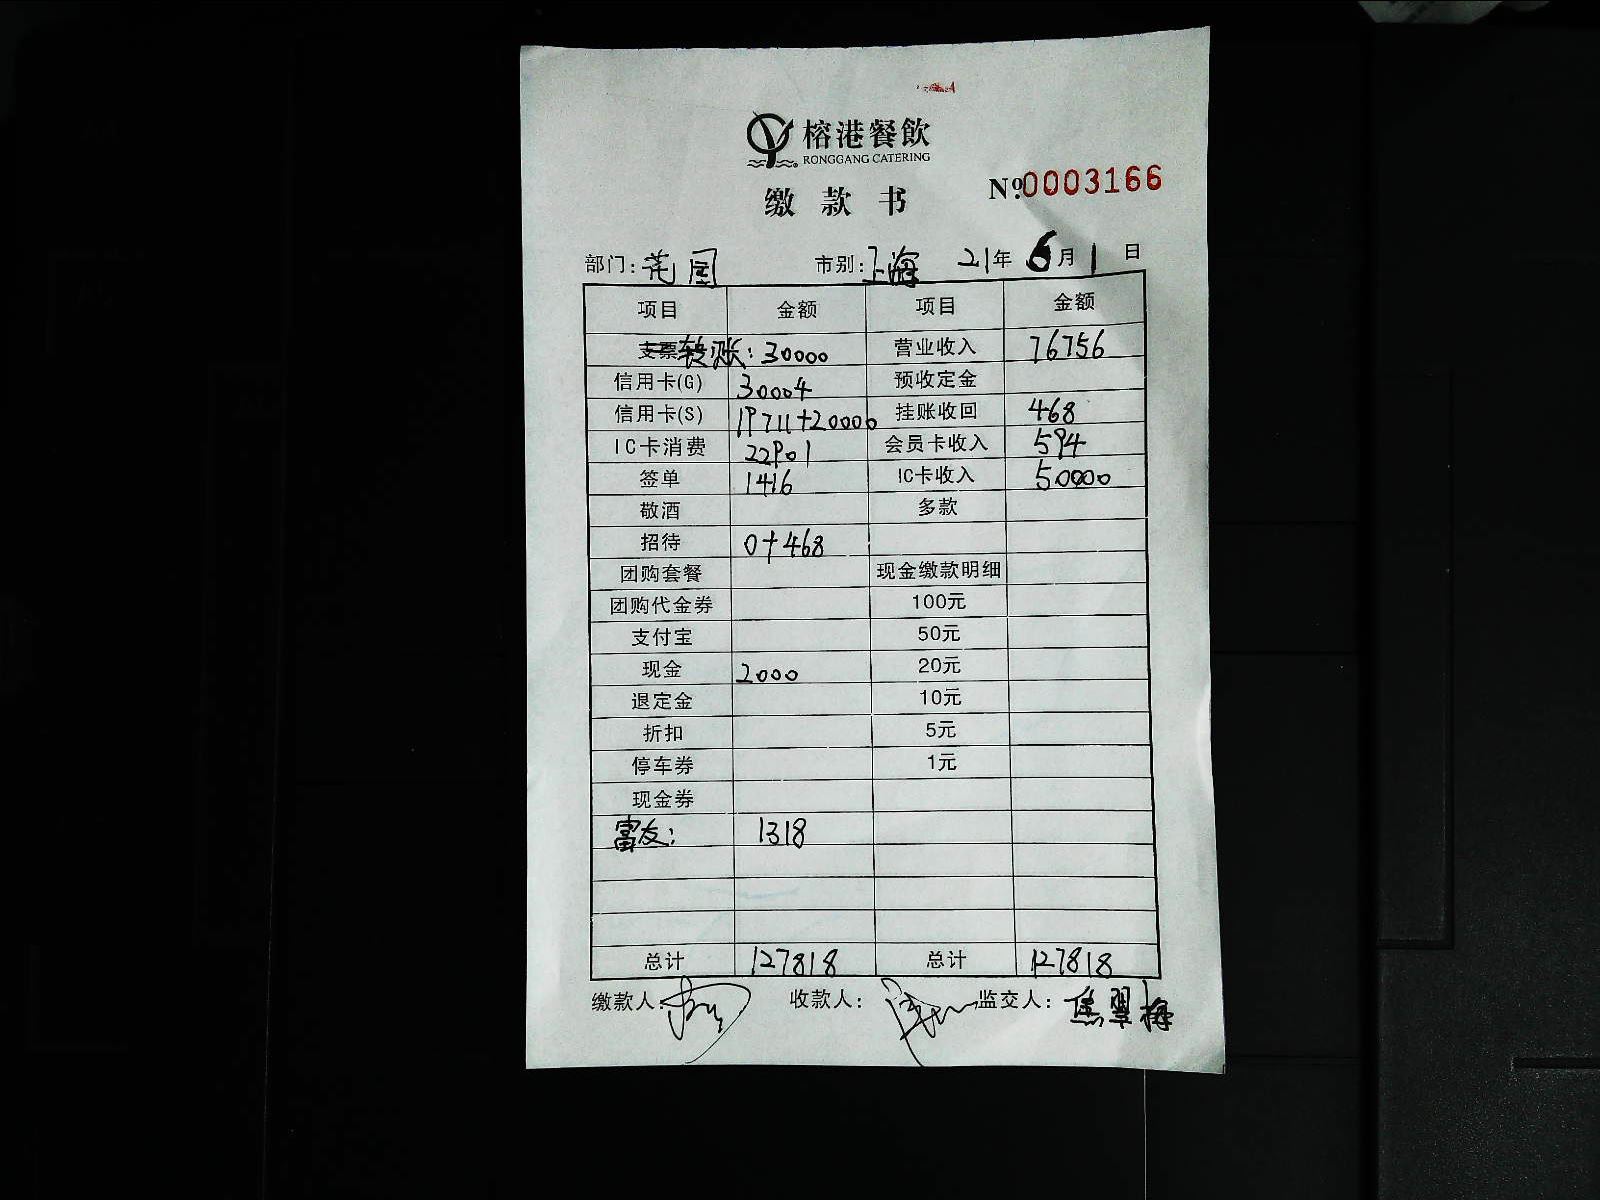 榕港餐飲
RONGGANG CATERING
缴款书 Nº 0003166
部门: 市别: 上海 21年 6月 1日
项目 金额 项目 金额
支票 转账: 30000 营业收入 76756
信用卡(G) 30004 预收定金
信用卡(S) 19711+20000 挂账收回 468
IC卡消费 22901 会员卡收入 594
签单 1416 IC卡收入 50000
敬酒 多款
招待 0+468
团购套餐 现金缴款明细
团购代金券 100元
支付宝 50元
现金 2000 20元
退定金 10元
折扣 5元
停车券 1元
现金券
富友: 1318
总计 127818 总计 127818
缴款人: 收款人: 监交人: 焦翠梅